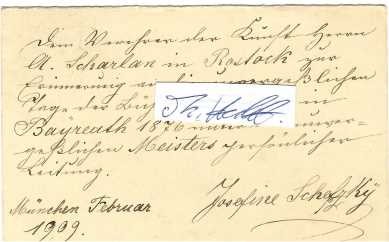 Dem Verehrer der Kunst Herrn
A. Scharlau in Rostock zur
Erinnerung an die unvergeßlichen
Tage der
Bayreuth 1876 unter unver-
geßlichen Meisters persönlicher
Leitung.
Josefine Schefzky
München Februar
1909.